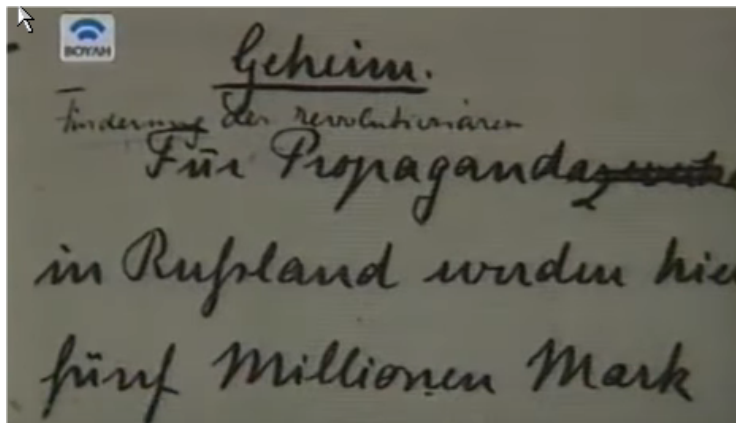 BOYAH
Geheim.
Förderung der revolutionären
Für Propaganda
in Rußland werden hie
fünf Millionen Mark